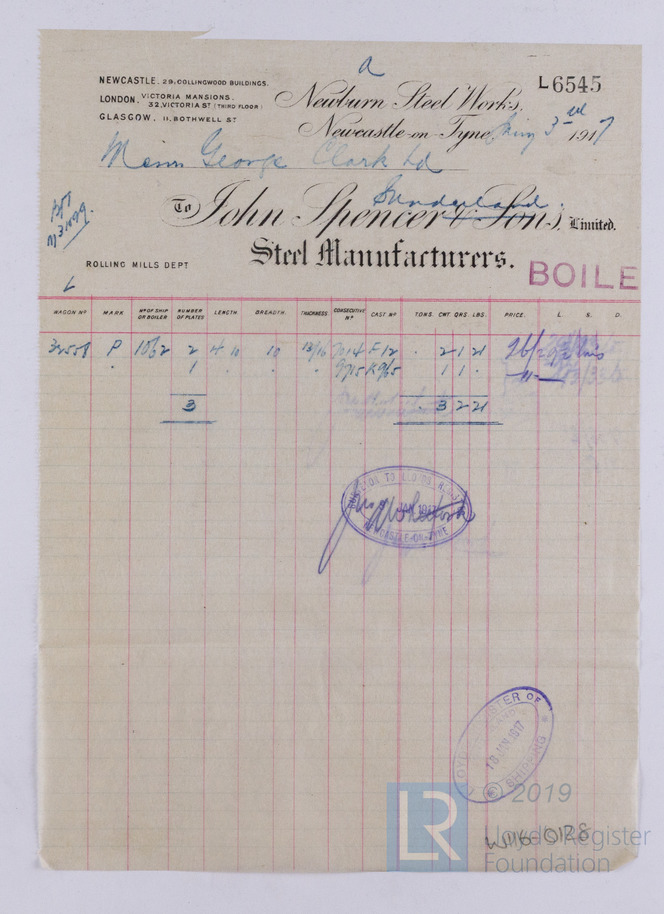 a
NEWCASTLE. 29, COLLINGWOOD BUILDINGS.
LONDON. VICTORIA MANSIONS. 32, VICTORIA ST (THIRD FLOOR)
GLASGOW. 11, BOTHWELL ST
L6545
Newburn Steel Works,
Newcastle-on-Tyne, 3rd 1917
Messrs George Clark Ld
Sunderland.
To John Spencer & Sons, Limited.
Steel Manufacturers.
ROLLING MILLS DEPT
BOILE
WAGON Nº MARK Nº OF SHIP OR BOILER NUMBER OF PLATES LENGTH BREADTH. THICKNESS CONSECUTIVE Nº CAST Nº TONS. CWT. QRS. LBS. PRICE. L. S. D.
32558 P 1062 2 4 10 10 13/16 F12 . 2 1 21
1 . . . 1 1 .
3 3 2 21
LLOYDS REGISTER
JAN 1917
NEWCASTLE-ON-TYNE
LLOYDS REGISTER OF SHIPPING
18 JAN 1917
© 2019
LR
Lloyd's Register
Foundation
W116-0128